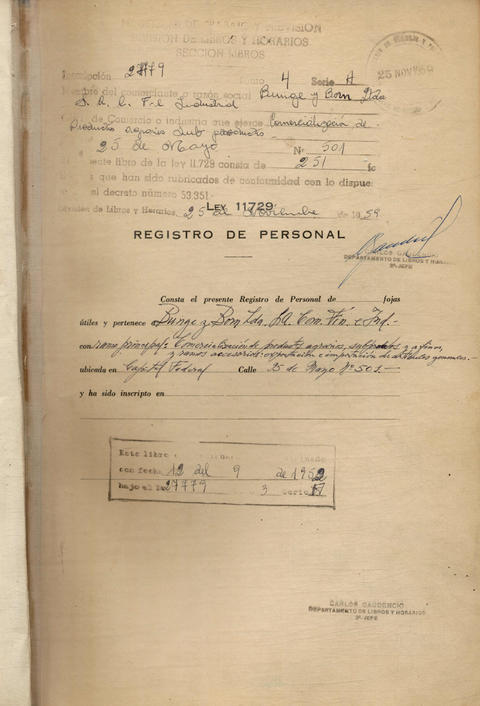 DE TRABAJO Y PREVISION
DIVISION DE LIBROS Y HORARIOS
SECCION LIBROS
25 NOV 1959
Inscripción 27779 4 Serie A
Nombre del comerciante o razón social Bunge y Born Ltda
S.A.C. F. e Industrial
de Comercio o industria que ejerce Comercialización de
Productos agrarios sub productos
25 de Mayo Nº 501
ente libro de la ley 11.729 consta de 251 fo
s que han sido rubricados de conformidad con lo dispue
el decreto número 53.351.
de Libros y Horarios, 25 de Noviembre de 1959
LEY 11.729
REGISTRO DE PERSONAL
CARLOS GAUDENCIO
DEPARTAMENTO DE LIBROS Y HORARI
2º JEFE
Consta el presente Registro de Personal de fojas
útiles y pertenece a Bunge y Born Ltda. S.A. Com. Fin. e Ind.-
con ramo principal: Comercialización de productos agrarios, subproductos y afines,
y ramos accesorios: exportación e importación de artículos generales.-
ubicada en Capital Federal Calle 25 de Mayo Nº 501.-
y ha sido inscripto en
Este libro
con fecha 12 del 9 de 1962
bajo el 27779 3 Serie
CARLOS GAUDENCIO
DEPARTAMENTO DE LIBROS Y HORARIOS
2º JEFE